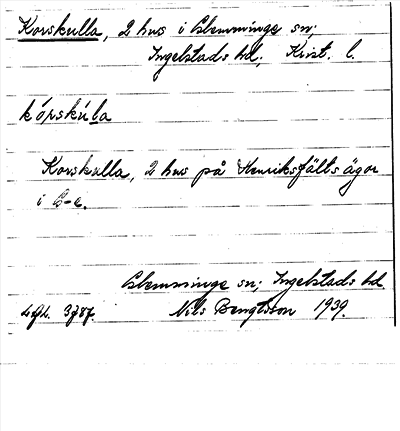 Korskulla, 2 hus i Glemminge sn;
Ingelstads hd, Krist. l.
kórskúla
Korskulla, 2 hus på Henriksfälts ägor
i G-e.
Glemminge sn; Ingelstads hd
Nils Bengtsson 1939.